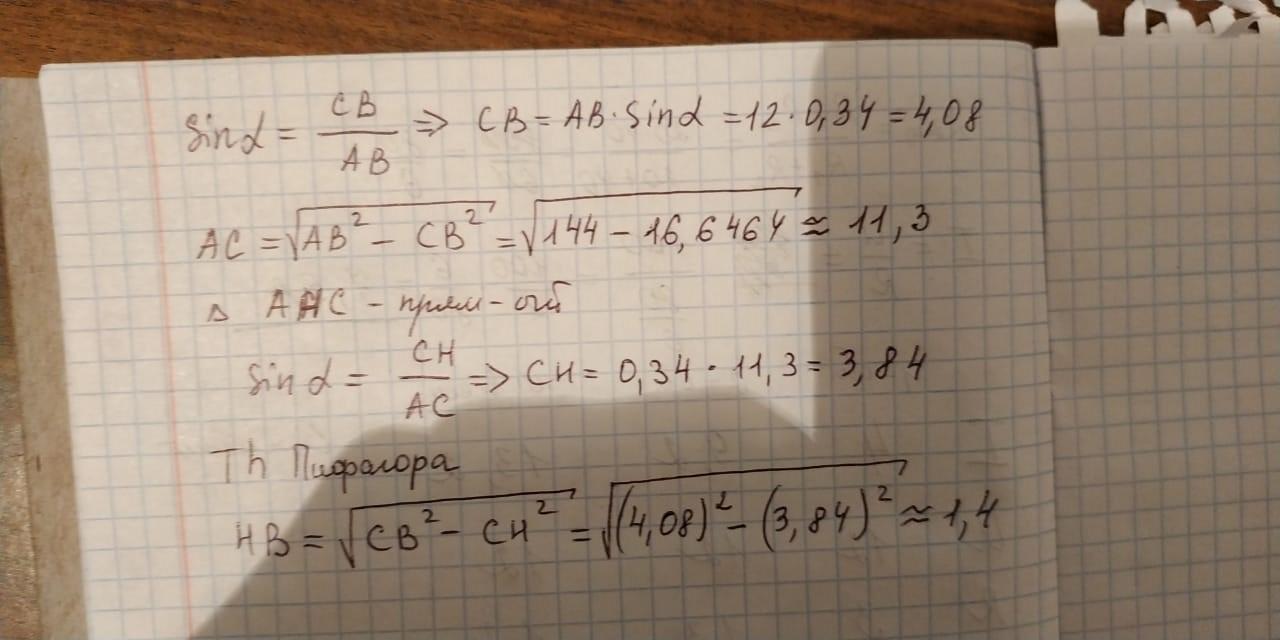 Sinα = CB/AB => CB = AB · Sinα = 12 · 0,34 = 4,08
AC = √(AB² - CB²) = √(144 - 16,6464) ≈ 11,3
△ AHC - прям-ый
Sinα = CH/AC => CH = 0,34 · 11,3 = 3,84
Th Пифагора
HB = √(CB² - CH²) = √((4,08)² - (3,84)²) ≈ 1,4